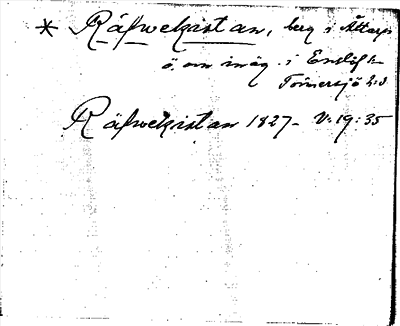 * Räfwekistan, berg i Attarp
ö. om inäg. i Enslöf s:n
Tönnersjö h:d
Räfwekistan 1827 - V. 19:35